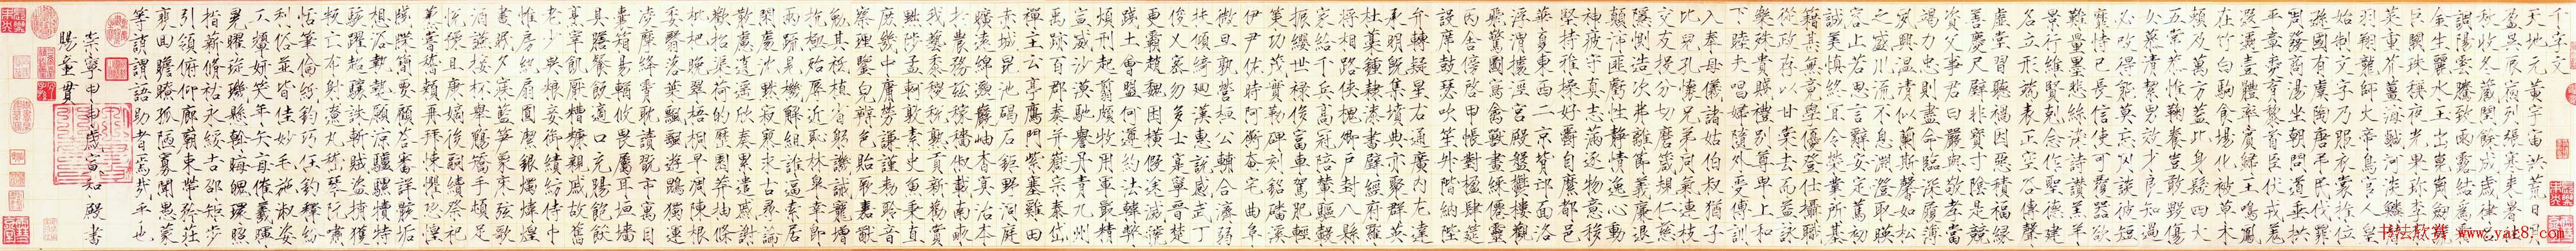 千字文
天地元黃宇宙洪荒日月
盈昃辰宿列張寒來暑往
秋收冬藏閏餘成歲律呂
調陽雲騰致雨露結為霜
金生麗水玉出崑崗劍號
巨闕珠稱夜光果珍李柰
菜重芥薑海鹹河淡鱗潛
羽翔龍師火帝鳥官人皇
始制文字乃服衣裳推位
遜國有虞陶唐弔民伐罪
周發商湯坐朝問道垂拱
平章愛育黎首臣伏戎羌
遐邇壹體率賓歸王鳴鳳
在竹白駒食場化被草木
賴及萬方蓋此身髮四大
五常恭惟鞠養豈敢毀傷
女慕清絜男效才良知過
必改得能莫忘罔談彼短
靡恃己長信使可覆器欲
難量墨悲絲染詩讚羔羊
景行維賢剋念作聖德建
名立形端表正空谷傳聲
虛堂習聽禍因惡積福緣
善慶尺璧非寶寸陰是競
資父事君曰嚴與敬孝當
竭力忠則盡命臨深履薄
夙興溫清似蘭斯馨如松
之盛川流不息淵澄取映
容止若思言辭安定篤初
誠美慎終宜令榮業所基
籍甚無竟學優登仕攝職
從政存以甘棠去而益詠
樂殊貴賤禮別尊卑上和
下睦夫唱婦隨外受傅訓
入奉母儀諸姑伯叔猶子
比兒孔懷兄弟同氣連枝
交友投分切磨箴規仁慈
隱惻造次弗離節義廉退
顛沛匪虧性靜情逸心動
神疲守真志滿逐物意移
堅持雅操好爵自縻都邑
華夏東西二京背邙面洛
浮渭據涇宮殿盤鬱樓觀
飛驚圖寫禽獸畫綵僊靈
丙舍傍啟甲帳對楹肆筵
設席鼓瑟吹笙升階納陛
弁轉疑星右通廣內左達
承明既集墳典亦聚群英
杜藁鍾隸漆書壁經府羅
將相路俠槐卿戶封八縣
家給千兵高冠陪輦驅轂
振纓世祿侈富車駕肥輕
策功茂實勒碑刻銘磻溪
伊尹佐時阿衡奄宅曲阜
微旦孰營桓公輔合濟弱
扶傾綺迴漢惠說感武丁
俊乂密勿多士寔寧晉楚
更霸趙魏困橫假途滅虢
踐土會盟何遵約法韓弊
煩刑起翦頗牧用軍最精
宣威沙漠馳譽丹青九州
禹跡百郡秦并嶽宗泰岱
禪主云亭鴈門紫塞雞田
赤城昆池碣石鉅野洞庭
曠遠綿邈巖岫杳冥治本
於農務茲稼穡俶載南畝
我藝黍稷稅熟貢新勸賞
黜陟孟軻敦素史魚秉直
庶幾中庸勞謙謹敕聆音
察理鑒貌辨色貽厥嘉猷
勉其祗植省躬譏誡寵增
抗極殆辱近恥林皋幸即
兩疏見機解組誰逼索居
閑處沈默寂寥求古尋論
散慮逍遙欣奏累遣慼謝
歡招渠荷的歷園莽抽條
枇杷晚翠梧桐早凋陳根
委翳落葉飄颻遊鵾獨運
凌摩絳霄耽讀翫市寓目
囊箱易輶攸畏屬耳垣牆
具膳餐飯適口充腸飽飫
烹宰飢厭糟糠親戚故舊
老少異糧妾御績紡侍巾
帷房紈扇圓潔銀燭煒煌
晝眠夕寐藍笋象床弦歌
酒讌接杯舉觴矯手頓足
悅豫且康嫡後嗣續祭祀
蒸嘗稽顙再拜悚懼恐惶
牋牒簡要顧答審詳骸垢
想浴執熱願涼驢騾犢特
駭躍超驤誅斬賊盜捕獲
叛亡布射遼丸嵇琴阮嘯
恬筆倫紙鈞巧任釣釋紛
利俗並皆佳妙毛施淑姿
工顰妍笑年矢每催羲暉
晃曜琁璣懸斡晦魄環照
指薪脩祜永綏吉劭矩步
引領俯仰廊廟束帶矜莊
徘徊瞻眺孤陋寡聞愚蒙
等誚謂語助者焉哉乎也
崇寧甲申歲宣和殿書
賜童貫
书法欣赏 www.yac8.com